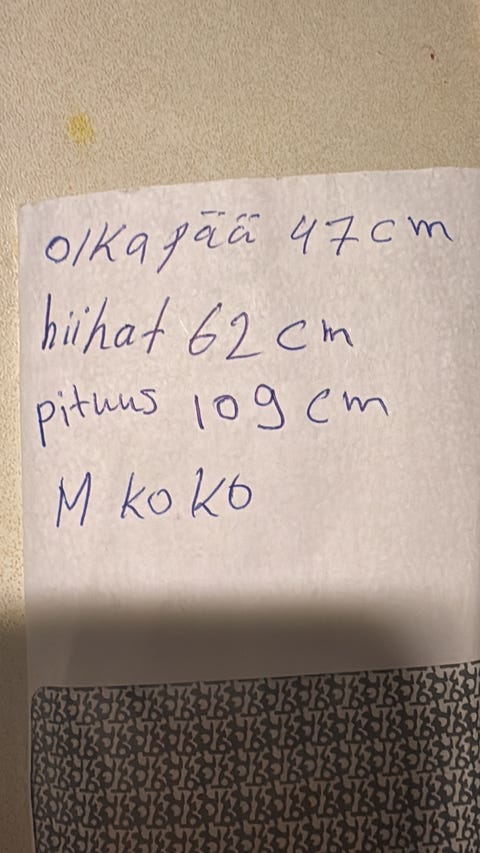 olkapää 47cm
hiihat 62 cm
pituus 109 cm
M koko